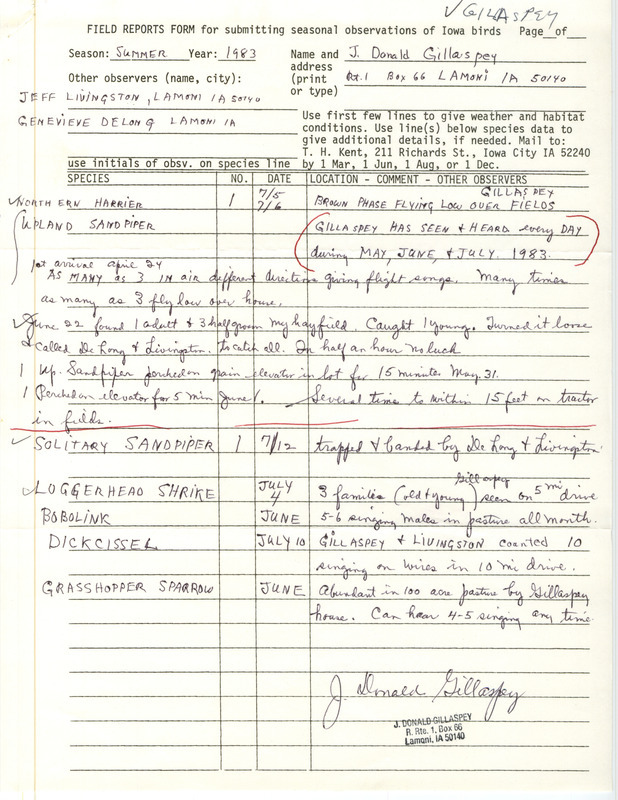 ✓GILLASPEY
FIELD REPORTS FORM for submitting seasonal observations of Iowa birds Page__of__
Season: SUMMER Year: 1983 Name and J. Donald Gillaspey
address
(print Rt.1 Box 66 LAMONI IA 50140
or type)
Other observers (name, city):
JEFF LIVINGSTON, LAMONI IA 50140
GENEVIEVE DELONG LAMONI IA
Use first few lines to give weather and habitat
conditions. Use line(s) below species data to
give additional details, if needed. Mail to:
T. H. Kent, 211 Richards St., Iowa City IA 52240
by 1 Mar, 1 Jun, 1 Aug, or 1 Dec.
use initials of obsv. on species line
SPECIES NO. DATE LOCATION - COMMENT - OTHER OBSERVERS
GILLASPEY
✓NORTHERN HARRIER 1 7/5 7/6 BROWN PHASE FLYING LOW OVER FIELDS
UPLAND SANDPIPER GILLASPEY HAS SEEN & HEARD every DAY
during MAY, JUNE, & JULY. 1983.
1st arrival april 24
AS MANY as 3 IN air different directions giving flight songs. Many times
as many as 3 fly low over house.
✓June 22 found 1 adult & 3 half grown my hayfield. Caught 1 young. Turned it loose
& called De Long & Livingston. To catch all. In half an hour no luck
1 Up. Sandpiper perched on grain elevator in lot for 15 minutes May. 31.
1 Perched on elevator for 5 min June 1. Several time to within 15 feet on tractor
in fields.
✓SOLITARY SANDPIPER 1 7/12 trapped & banded by De Long & Livingston
✓LOGGERHEAD SHRIKE JULY 4 3 families (old & young) Gillaspey seen on 5 mi drive
BOBOLINK JUNE 5-6 singing males in pasture all month.
DICKCISSEL JULY 10 GILLASPEY & LIVINGSTON counted 10
singing on wires in 10 mi drive.
GRASSHOPPER SPARROW JUNE Abundant in 100 acre pasture by Gillaspey
house. Can hear 4-5 singing any time.
J. Donald Gillaspey
J. DONALD GILLASPEY
R. Rte. 1, Box 66
Lamoni, IA 50140